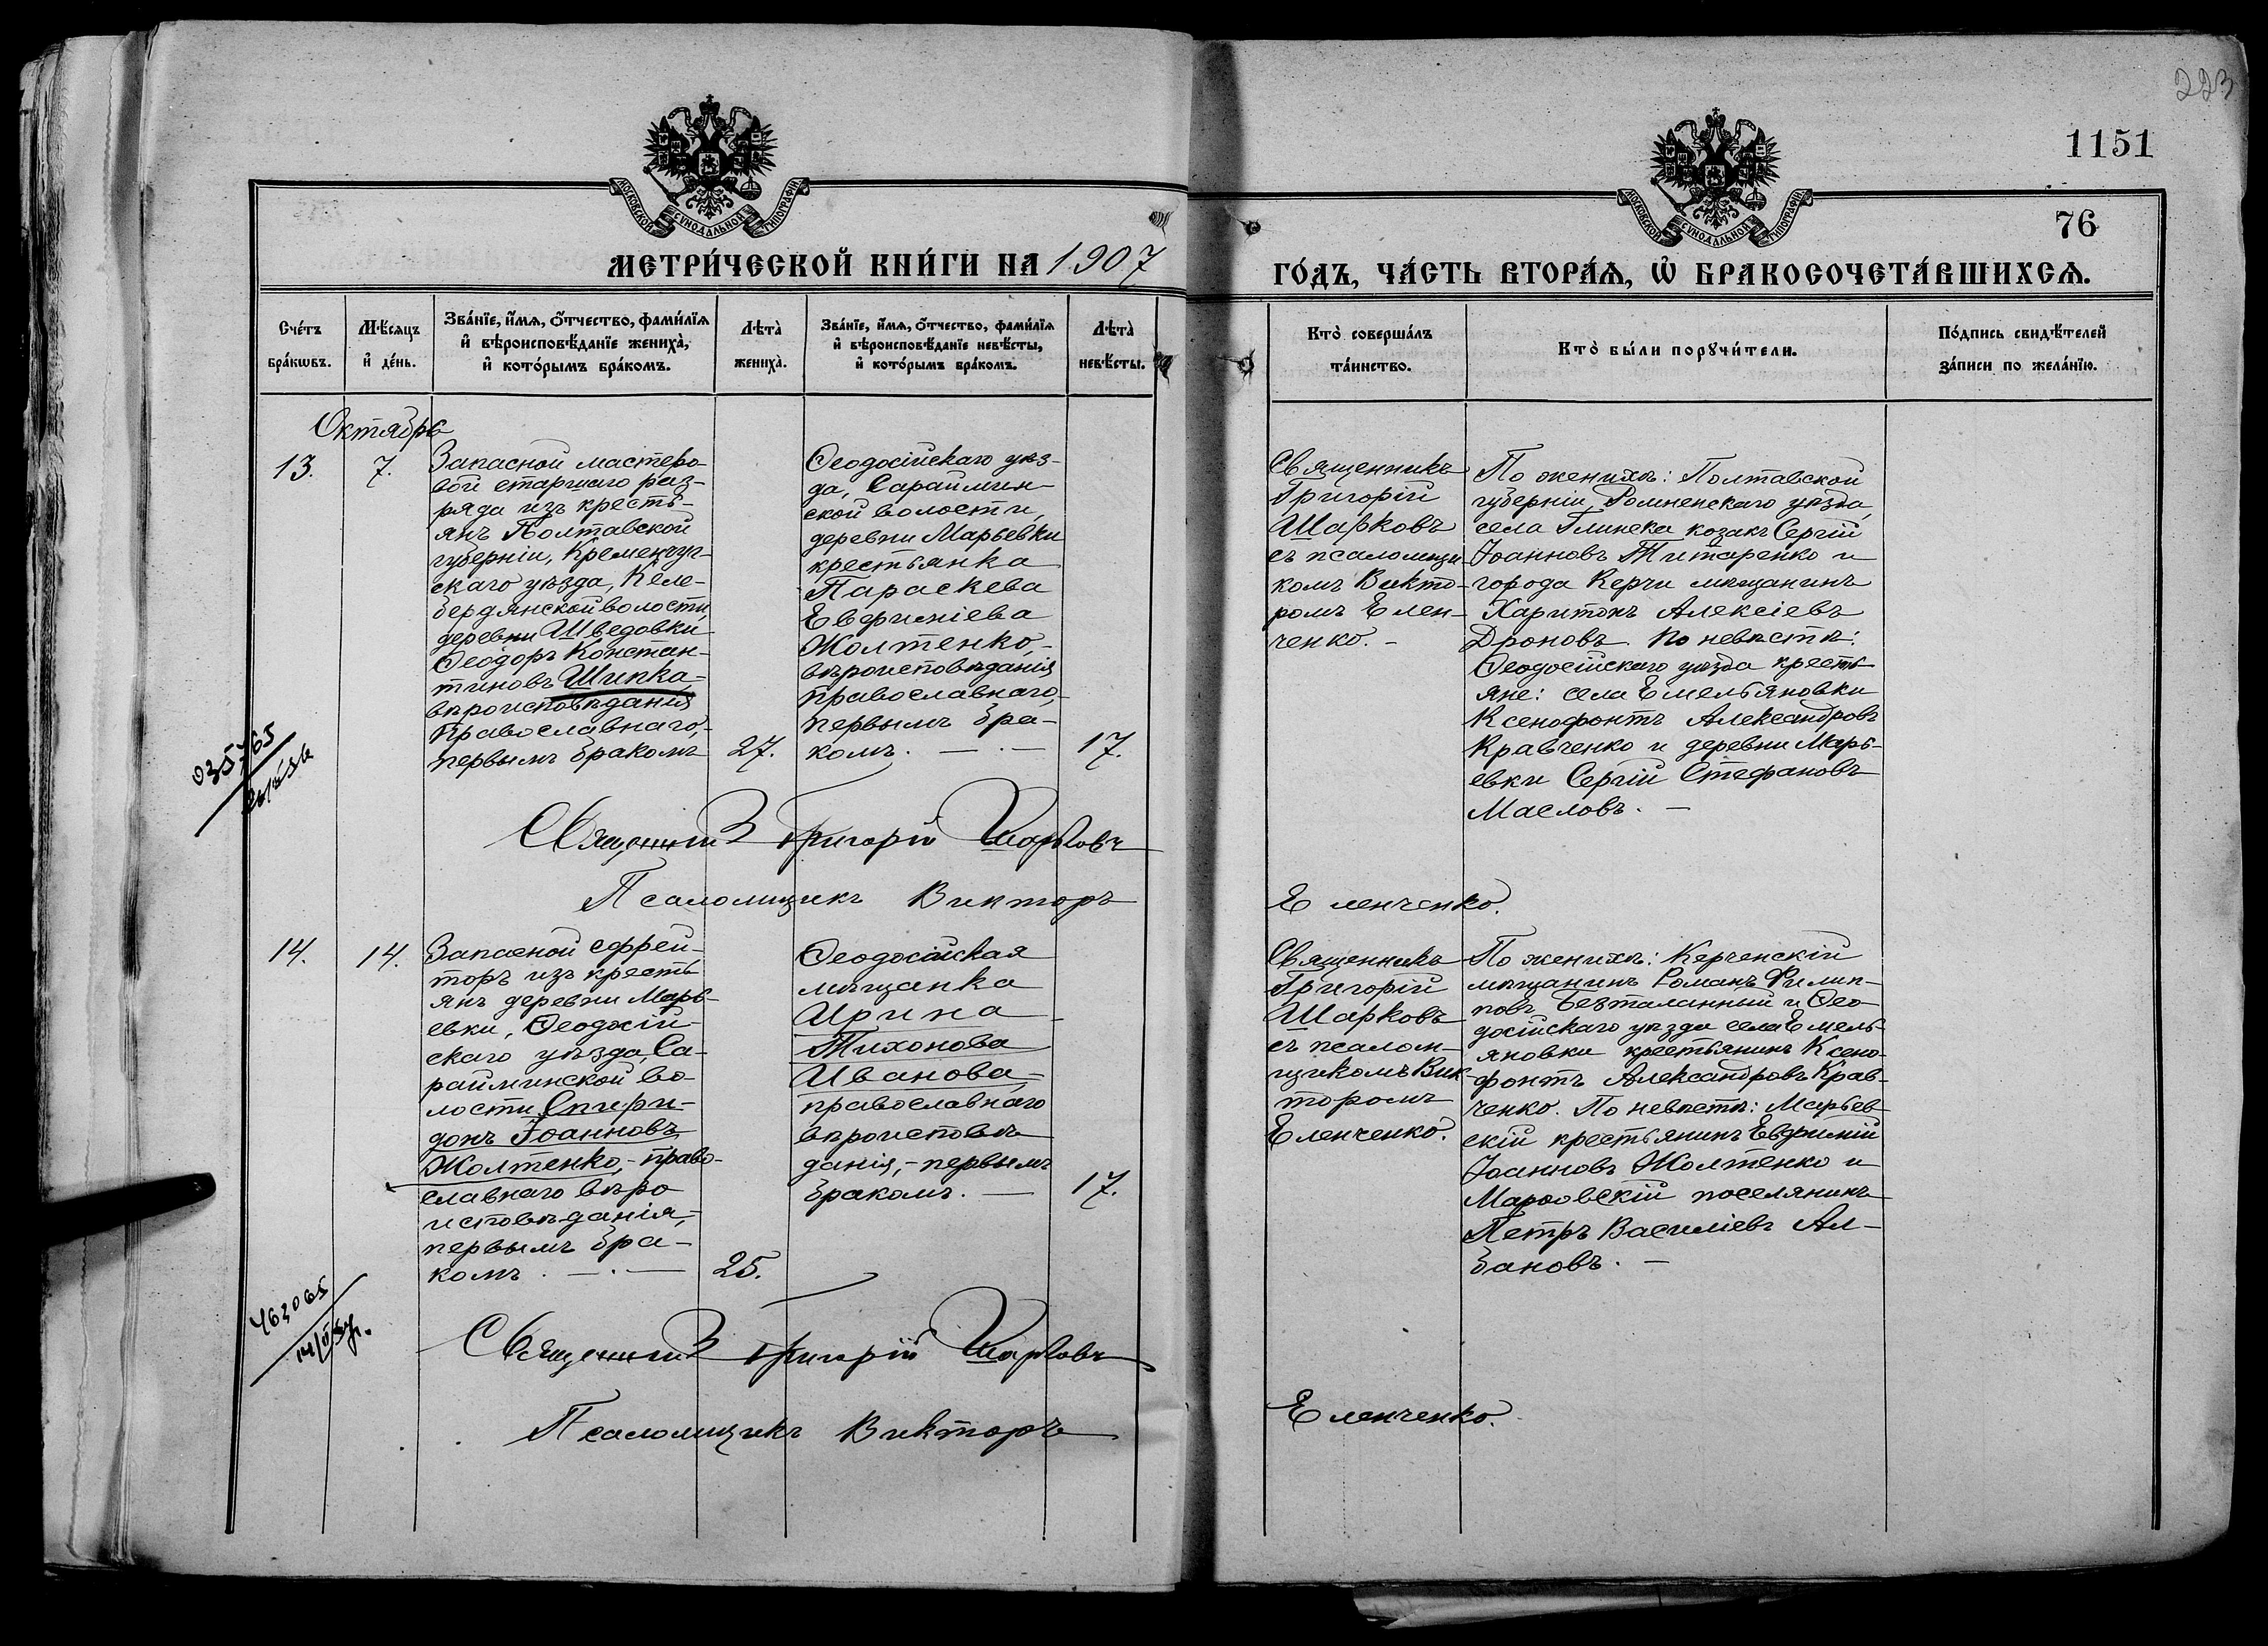 223
1151
76
МОСКОВСКОЙ СѴНОДАЛЬНОЙ ТИПОГРАФІИ
МОСКОВСКОЙ СѴНОДАЛЬНОЙ ТИПОГРАФІИ
МЕТРИ́ЧЕСКОЙ КНИ́ГИ НА 1907
ГО́ДЪ, ЧА́СТЬ ВТОРА́Ѧ, Ѡ҆ БРАКОСОЧЕТА́ВШИХСѦ.
Сче́тъ
бра́кѡвъ.
Мѣ́сяцъ
и҆ де́нь.
Зва́нїе, и҆́мѧ, ѻ҆́тчество, фами́лїѧ
и҆ вѣроисповѣ́данїе жениха̀,
и҆ кото́рымъ бра́комъ.
Лѣта̀
жениха̀.
Зва́нїе, и҆́мѧ, ѻ҆́тчество, фами́лїѧ
и҆ вѣроисповѣ́данїе невѣ́сты,
и҆ кото́рымъ бра́комъ.
Лѣта̀
невѣ́сты.
Кто̀ соверша́лъ
та́инство.
Кто̀ бы́ли порꙋчи́тели.
По́дпись свидѣ́телей
за́писи по жела́нїю.
Октябрь
13.
7.
Запасной мастеро-
вой старшаго раз-
ряда изъ кресть-
янъ Полтавской
губерніи, Кременчуг-
скаго уѣзда, Келе-
бердянской волости,
деревни Шведовки
Ѳеодоръ Констан-
тиновъ Шипка,-
вѣроисповѣданія
православнаго,-
первымъ бракомъ
27.
Ѳеодосійскаго уѣз-
да, Сарайлин-
ской волости,
деревни Марьевки
крестьянка
Параскева
Евфиміева
Жолтенко,-
вѣроисповѣданія
православнаго,
первымъ бра-
комъ. — . —
17.
Священникъ
Григорій
Шарковъ
съ псаломщи-
комъ Викто-
ромъ Елен-
ченко. -
По женихѣ: Полтавской
губерніи, Роменскаго уѣзда,
села Глинска козакъ Сергій
Іоанновъ Титаренко и
города Керчи мѣщанинъ
Харитонъ Алексіевъ
Дроновъ. По невѣстѣ:
Ѳеодосійскаго уѣзда кресть-
яне: села Емельяновки
Ксенофонтъ Александровъ
Кравченко и деревни Марь-
евки Сергій Стефановъ
Масловъ. —
Священникъ Григорій Шарковъ
Псаломщикъ Викторъ Еленченко.
14.
14.
Запасной ефрей-
торъ изъ кресть-
янъ деревни Марь-
евки, Ѳеодосій-
скаго уѣзда, Са-
райминской во-
лости Спири-
донъ Іоанновъ
Жолтенко,- право-
славнаго вѣро
исповѣданія,-
первымъ бра-
комъ. — . —
25.
Ѳеодосійская
мѣщанка
Ирина
Тихонова
Иванова,-
православнаго
вѣроисповѣ
данія,- первымъ
бракомъ. —
17.
Священникъ
Григорій
Шарковъ
съ псалом-
щикомъ Вик-
торомъ
Еленченко.
По женихѣ: Керченскій
мѣщанинъ Романъ Филип-
повъ Безталанный и Ѳео-
досійскаго уѣзда села Емель-
яновки крестьянинъ Ксено-
фонтъ Александровъ Крав-
ченко. По невѣстѣ: Марьев-
скій крестьянинъ Евфимій
Іоанновъ Жолтенко и
Марфовскій поселянинъ
Петръ Василіевъ Ал-
бановъ. —
Священникъ Григорій Шарковъ
Псаломщикъ Викторъ Еленченко.